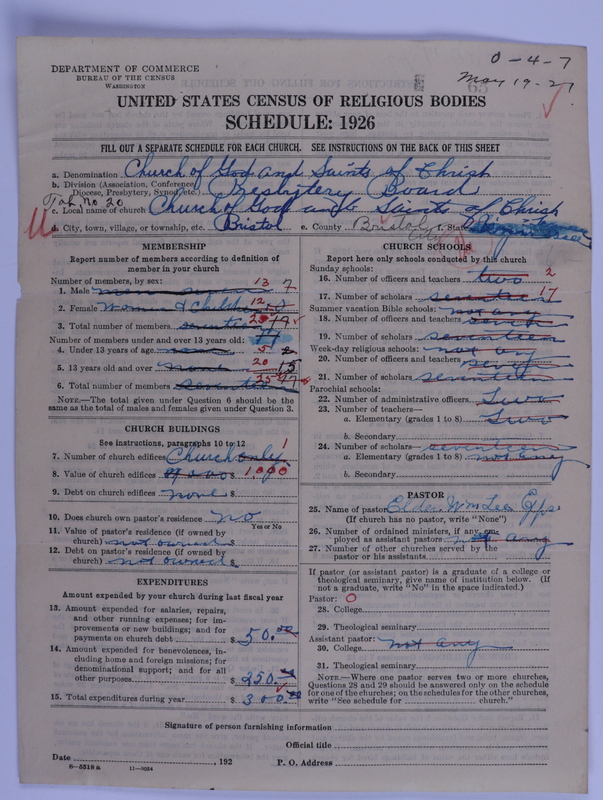 0-4-7
May 19-27
DEPARTMENT OF COMMERCE
BUREAU OF THE CENSUS
WASHINGTON
UNITED STATES CENSUS OF RELIGIOUS BODIES
SCHEDULE: 1926
FILL OUT A SEPARATE SCHEDULE FOR EACH CHURCH. SEE INSTRUCTIONS ON THE BACK OF THIS SHEET
a. Denomination Church of God and Saints of Christ
b. Division (Association, Conference, Diocese, Presbytery, Synod, etc.) Presbytery Board
Tab. No 20
c. Local name of church Church of God and Saints of Christ
d. City, town, village, or township, etc. Bristol e. County Bristol City f. State
MEMBERSHIP
Report number of members according to definition of
member in your church
Number of members, by sex:
1. Male men seven 13 7
2. Female Women & Children 12
3. Total number of members seventeen 25
Number of members under and over 13 years old:
4. Under 13 years of age 5
5. 13 years old and over 20 15
6. Total number of members seventeen 25 17
NOTE.—The total given under Question 6 should be
same as the total of males and females given under Question 3.
CHURCH BUILDINGS
See instructions, paragraphs 10 to 12
7. Number of church edifices Church only 1
8. Value of church edifices $ 1000
9. Debt on church edifices none $
10. Does church own pastor's residence no
Yes or No
11. Value of pastor's residence (if owned by
church) not owned $
12. Debt on pastor's residence (if owned by
church) not owned $
EXPENDITURES
Amount expended by church during last fiscal year
13. Amount expended for salaries, repairs,
and other running expenses; for im-
provements or new buildings; and for
payments on church debt $ 50.00
14. Amount expended for benevolences, in-
cluding home and foreign missions; for
denominational support; and for all
other purposes $ 250.
15. Total expenditures during year $ 300.00
CHURCH SCHOOLS
Report here only schools conducted by this church
Sunday schools:
16. Number of officers and teachers two 2
17. Number of scholars seventeen 17
Summer vacation Bible schools: not any
18. Number of officers and teachers seven
19. Number of scholars seventeen
Week-day religious schools: not any
20. Number of officers and teachers seven
21. Number of scholars seventeen
Parochial schools:
22. Number of administrative officers two
23. Number of teachers—
a. Elementary (grades 1 to 8) two
b. Secondary
24. Number of scholars— seventeen
a. Elementary (grades 1 to 8) not any
b. Secondary
PASTOR
25. Name of pastor Elder Wm Lee Epps
(If church has no pastor, write "None")
26. Number of ordained ministers, if any, em-
ployed as assistant pastors not any
27. Number of other churches served by the
pastor or his assistants
If pastor (or assistant pastor) is a graduate of a college or
theological seminary, give name of institution below. (If
not a graduate, write "No" in the space indicated.)
Pastor: 0
28. College
29. Theological seminary
Assistant pastor: not any
30. College
31. Theological seminary
NOTE.—Where one pastor serves two or more churches,
Questions 28 and 29 should be answered only on the schedule
for one of the churches; on the schedules for the other churches,
write "See schedule for church."
Signature of person furnishing information
Official title
Date , 192 P. O. Address
8-5518 a 11-9034